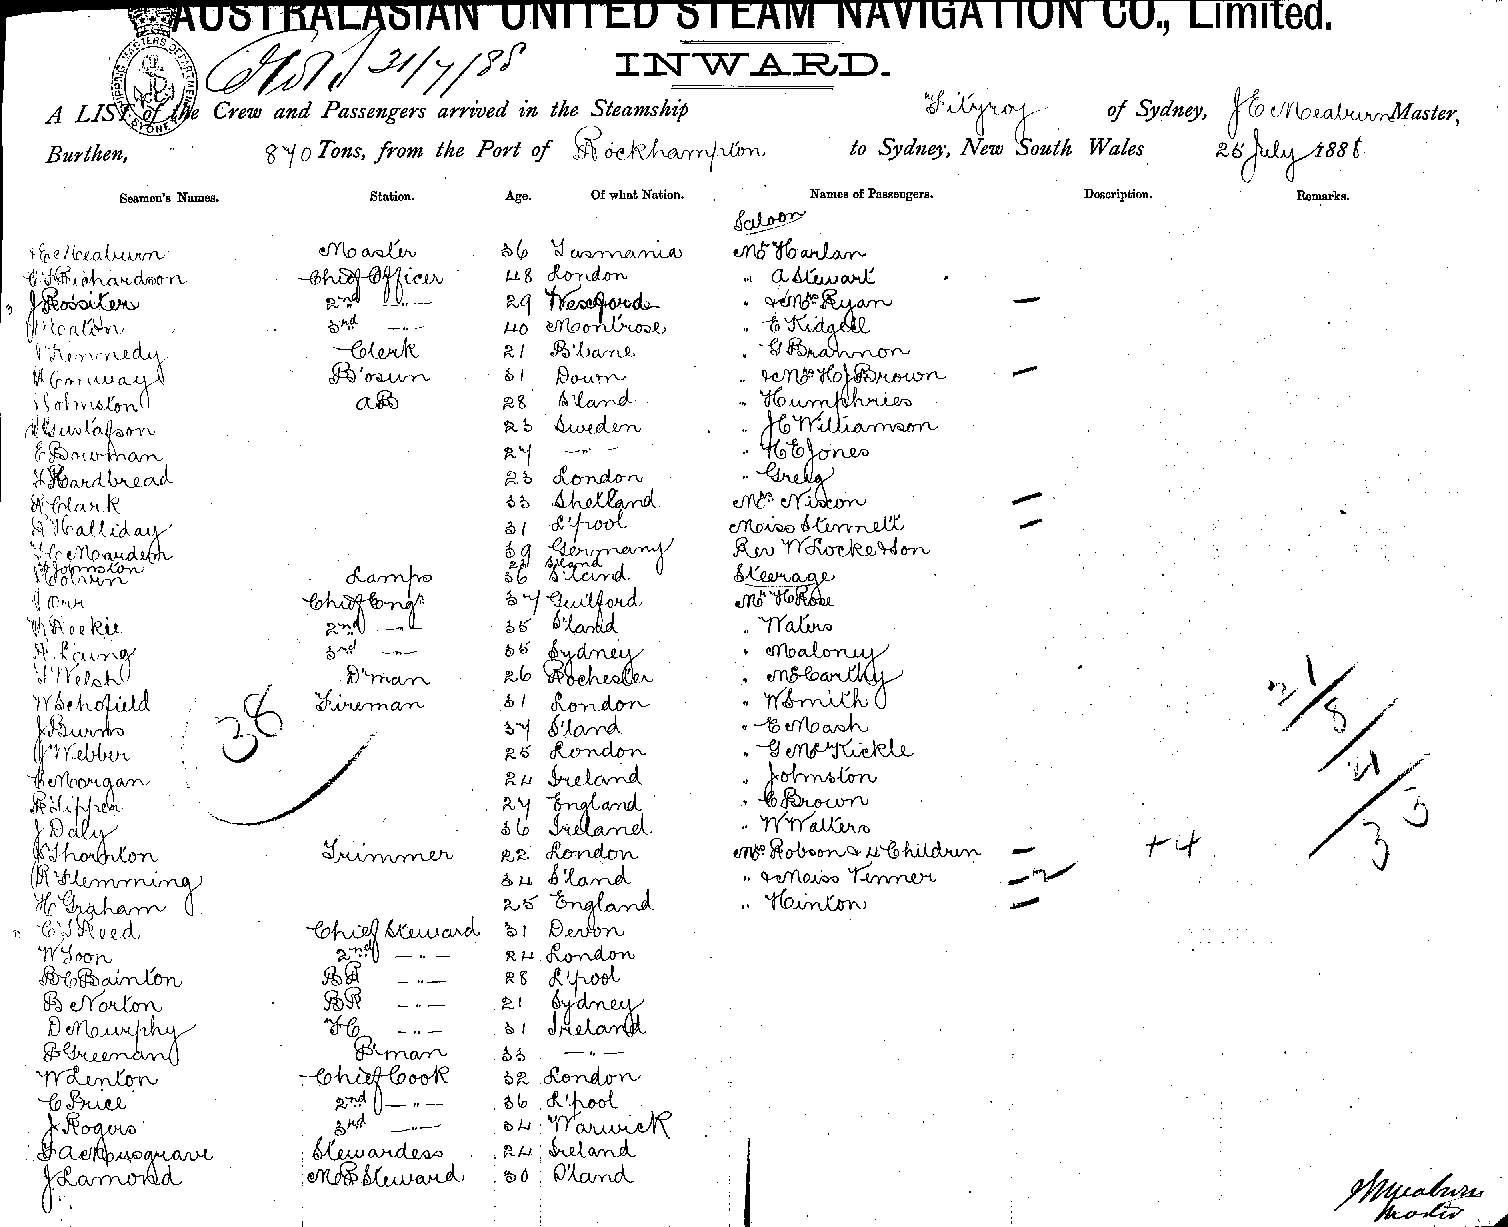 AUSTRALASIAN UNITED STEAM NAVIGATION CO., Limited.
31/7/88
INWARD.
A LIST of the Crew and Passengers arrived in the Steamship Fitzroy of Sydney, J C Meaburn Master,
Burthen, 870 Tons, from the Port of Rockhampton to Sydney, New South Wales 25 July 1888
Seamen's Names. Station. Age. Of what Nation. Names of Passengers. Description. Remarks.
Saloon
Meaburn Master 36 Tasmania Mr Harlan
Richardson Chief Officer 48 London " A Stewart
J Rositer 2nd —"— 29 Wexford " & Mrs Ryan —
Heaton 3rd —"— 40 Montrose " E Kidgell
Kennedy Clerk 21 B'bane " G Brannon
Conway B'osun 31 Down " & Mrs H J Brown —
Johnston AB 28 S'land " Humphries
Gustafson 23 Sweden " J C Williamson
E Bowman 27 —"— " H E Jones
Hardbread 23 London " Greig
Clark 33 Shetland Mrs Nixon —
Halliday 31 L'pool Miss Stennett —
39 Germany Rev W Locke & Son
Johnston S'land
Lamps 36 S'land Steerage
Orr Chief Engr 37 Guilford Mr H Rose
2nd —"— 35 S'land " Waters
Laing 3rd —"— 35 Sydney " Maloney
Welsh D'man 26 Rochester " McCarthy
W Schofield Fireman 31 London " W Smith
J Burns 37 S'land " E Mash
J Webber 25 London " G McKickle
Morgan 24 Ireland " Johnston
Tipper 27 England " C Brown
J Daly 36 Ireland " W Walters
Thornton Trimmer 22 London Mrs Robson & 4 Children — +4
Flemming 34 S'land " & Miss Venner — 2
H Graham 25 England " Hinton —
38
21/8/21/33
C J Reed Chief Steward 31 Devon
W Toon 2nd —"— 24 London
B C Bainton BR —"— 28 L'pool
B Norton BR —"— 21 Sydney
D Murphy FC —"— 31 Ireland
Greenan P'man 33 —"—
W Lenton Chief Cook 32 London
C Price 2nd —"— 36 L'pool
J Rogers 3rd —"— 34 Warwick
Musgrave Stewardess 24 Ireland
J Lamond M S Steward 30 S'land
Meaburn
Master